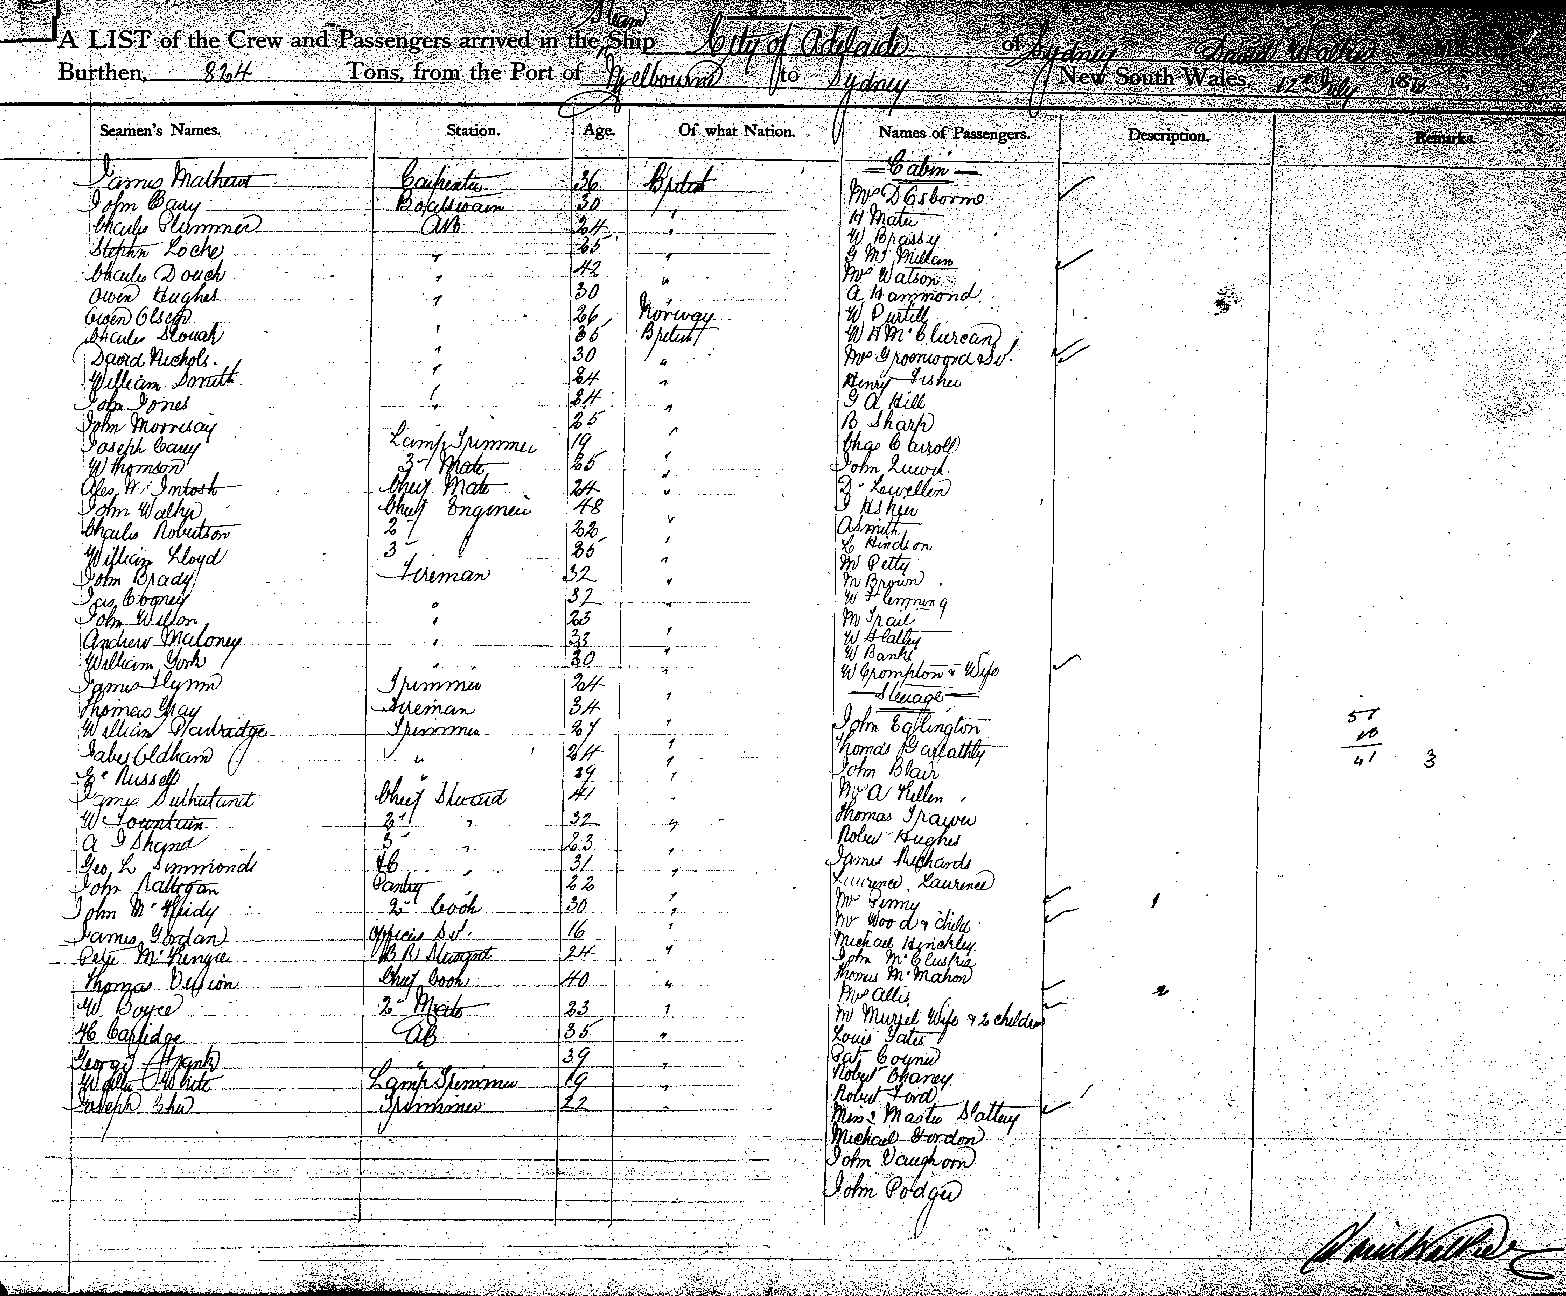 Steam
A LIST of the Crew and Passengers arrived in the Ship City of Adelaide of Sydney David Walker
Burthen, 824 Tons, from the Port of Melbourne to Sydney New South Wales 17th July 187
Seamen's Names. Station. Age. Of what Nation. Names of Passengers. Description. Remarks.
Cabin
James Mathews Carpenter 36 British Mrs D Osborne
John Cary Boatswain 30 " H Mate
Charles Plummer AB 24 " W Brassy
Stephn Locke " 25 " G Mc Millan
Charles Douch " 42 " Mrs Watson
Owen Hughes " 30 " A Hammond
Owen Olsen " 26 Norway W Purtill
Charles Slouch " 35 British W H McClurcan
David Nichols. " 30 " Mrs Groonwood & Sv!
William Smith " 24 " Henry Fisher
John Jones " 24 " G A Hill
John Morrisay " 25 " B Sharp
Joseph Carey Lamp Trimmer 19 " Chas Carroll
W Thomson 3 Mate 25 " John
Alex Mc Intosh Chief Mate 24 " Dr Lewellen
John Walker Chief Engineer 48 " J Fisher
Charles Robertson 2 " 22 " A Smith
William Lloyd 3 " 25 " C Hindson
John Brady Fireman 32 " M Petty
Jas Cooney " 32 " M Brown
John Wilson " 23 " W Flemming
Andrew Maloney " 33 " M Trail
William York " 30 " W Slattry
W Banks
James Flynn Trimmer 24 " W Crompton & Wife
Steerage
Thomas Gray Fireman 34 " John Eglington
William Partridge Trimmer 27 " Thomas Garlathly
Jabes Oldham " 24 " John Blair
Russell " 29 " Mr A Killen
James Sutherland Chief Steward 41 " Thomas Trawer
W Fountain 2 " 32 " Robert Hughes
A J Shand 3 " 23 " James Richards
Geo L Simmonds 4th " 31 " Laurence Laurence
John Rattigan Pantry 22 " Mrs Pinny 1
John Mc 2 Cook 30 " Mr Wood & child
James Gordan Officers Sv. 16 " Michael Hinchley
Peter McKenzie B R Steward 24 " John McClustrie
Thomas Vession Chief Cook 40 " Thomas McMahon
W Boyce 2 Mate 23 " Mrs Allis 2
H Cartledge AB 35 " Mr Muriel Wife & 2 children
George Frank " 39 " Louis Yates
Walter White Lamp Trimmer 19 " Pat Cound
Joseph Trimmer 22 " Robert Chaney
Robert Ford
Miss & Master Slattery
Michael Gordon
John Vaughorn
John Podger
51
10
41 3
David Walker